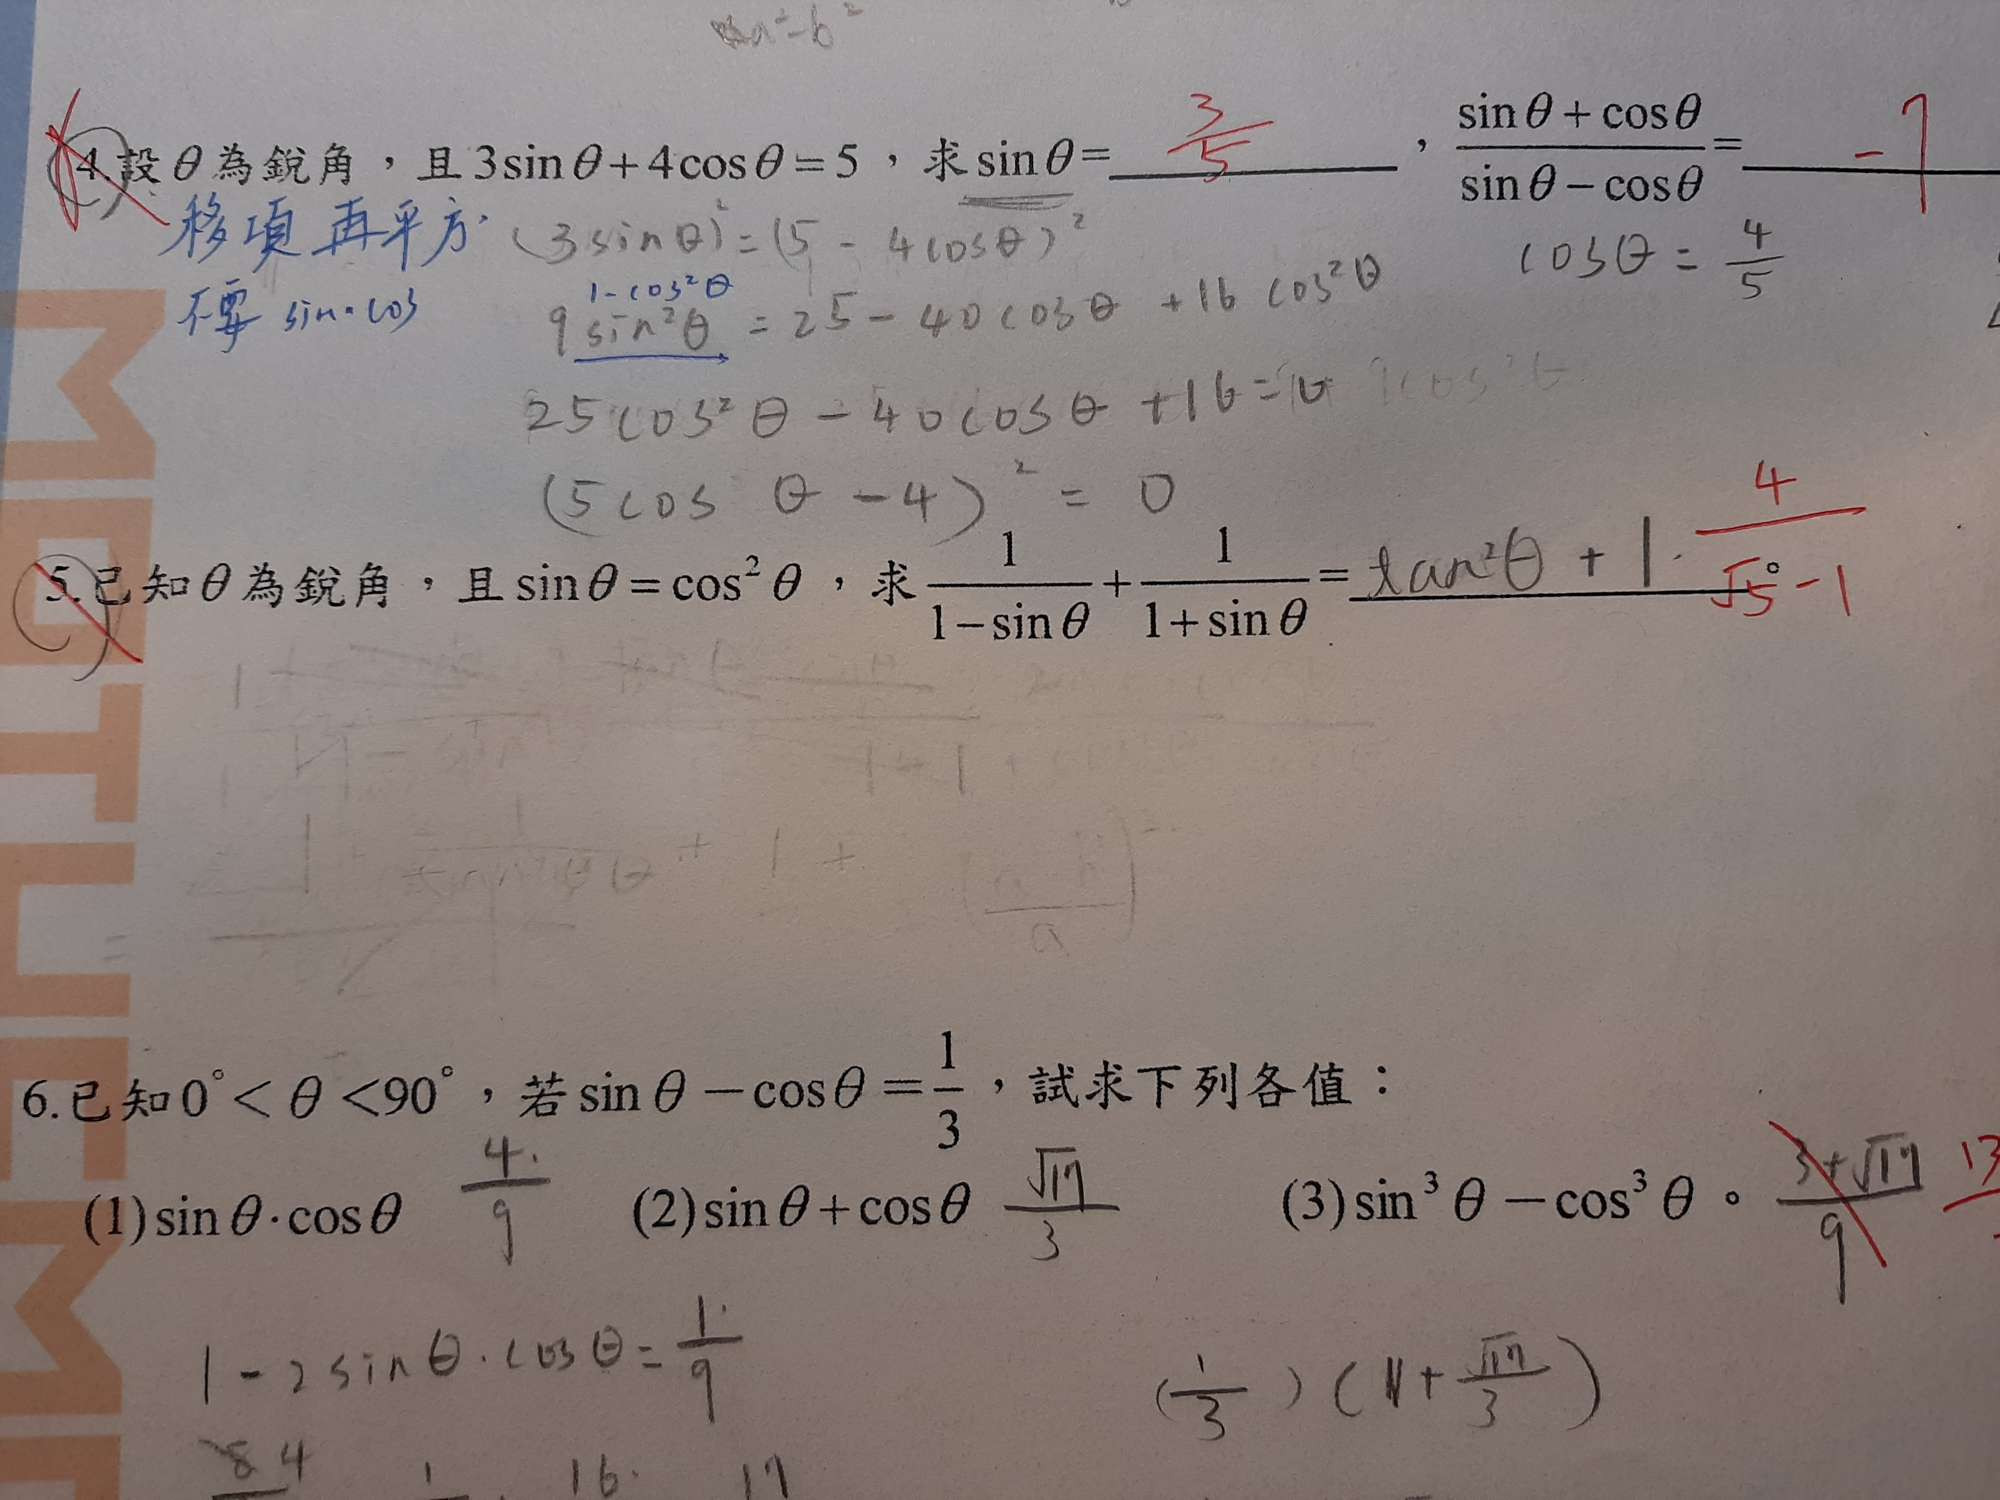 a²-b²
4.設θ為銳角，且3sinθ+4cosθ=5，求sinθ= 3/5 ，(sinθ+cosθ)/(sinθ-cosθ)= -7
移項再平方 (3sinθ)²=(5-4cosθ)² cosθ=4/5
不要 sin·cos 1-cos²θ
9sin²θ=25-40cosθ+16cos²θ
25cos²θ-40cosθ+16=0
(5cosθ-4)²=0
5.已知θ為銳角，且sinθ=cos²θ，求 1/(1-sinθ)+1/(1+sinθ)= tan²θ+1 4/(√5-1)。
6.已知0°<θ<90°，若sinθ-cosθ=1/3，試求下列各值：
(1)sinθ·cosθ 4/9 (2)sinθ+cosθ √17/3 (3)sin³θ-cos³θ。 3+√17/9 13
1-2sinθ·cosθ=1/9 (1/3)(1+√17/3)
8 4 1 16 17
METHEME